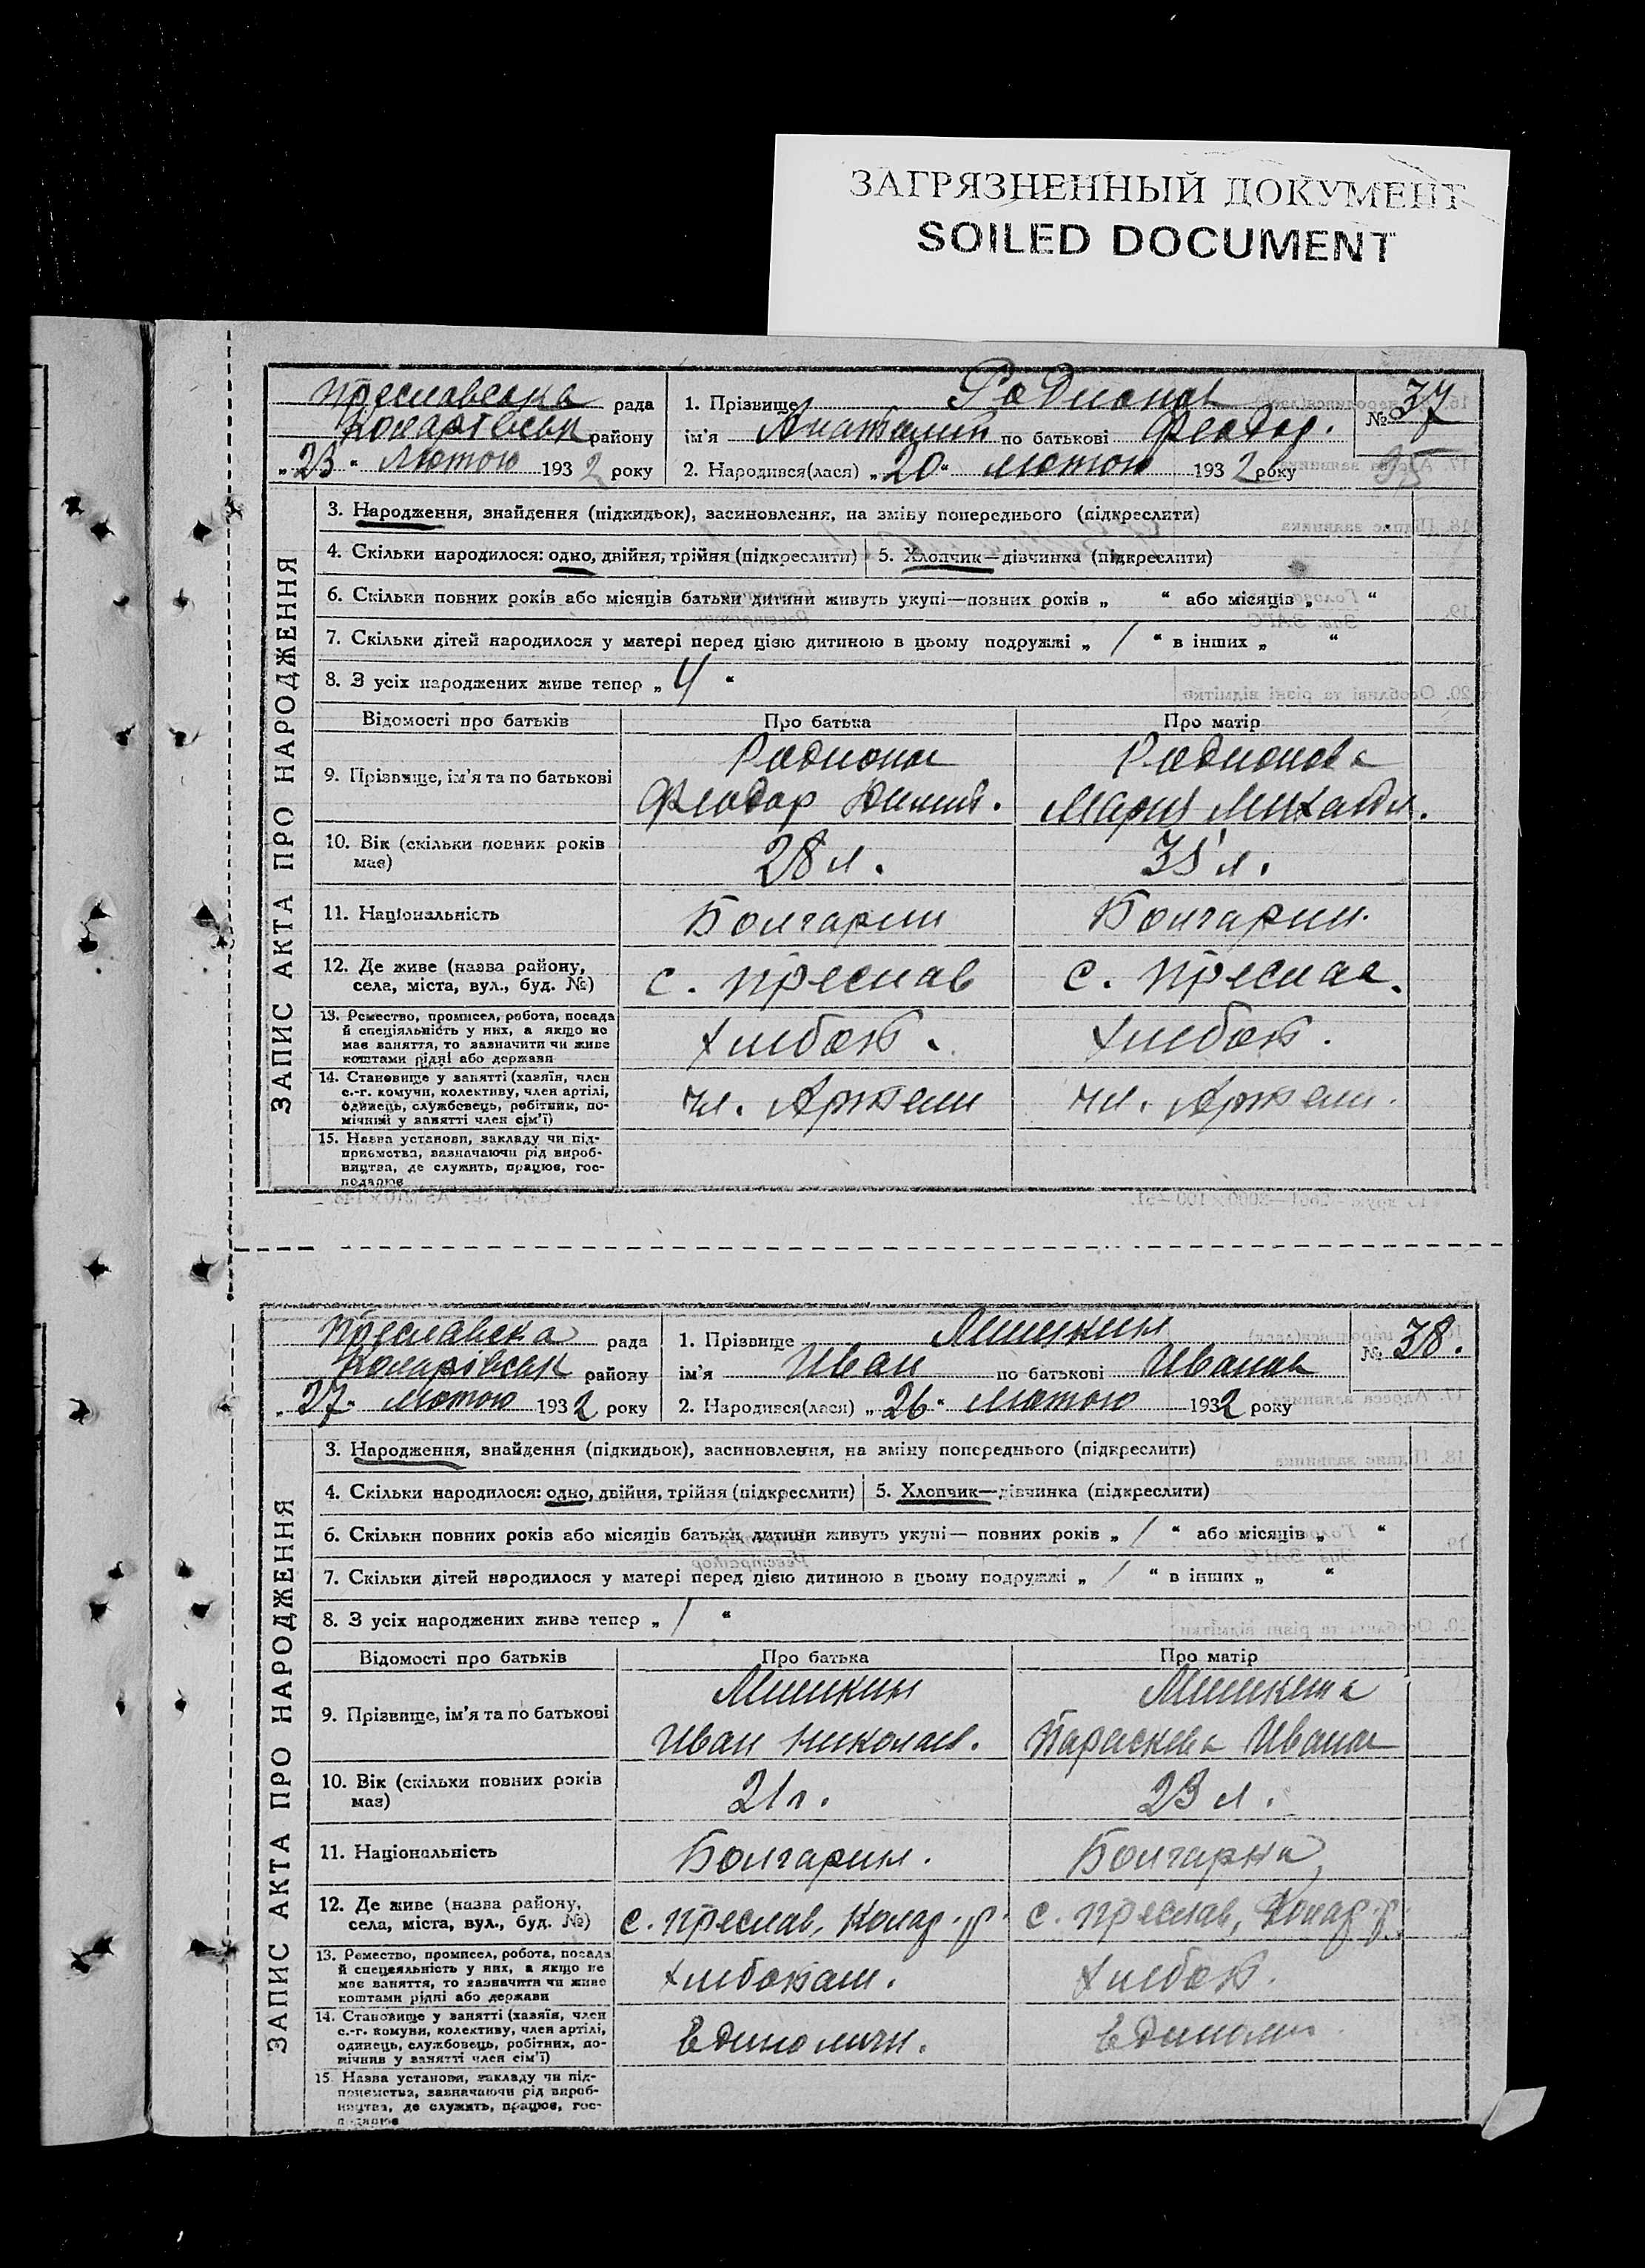 ЗАГРЯЗНЕННЫЙ ДОКУМЕНТ
SOILED DOCUMENT
Преславська рада
району
„23“ лютого 1932 року
1. Прізвище Родионов
ім'я Анатолий по батькові Феодор.
2. Народився(лася) „20“ лютого 1932 року
№ 37
95
ЗАПИС АКТА ПРО НАРОДЖЕННЯ
3. Народження, знайдення (підкидьок), засиновлення, на зміну попереднього (підкреслити)
4. Скільки народилося: одно, двійня, трійня (підкреслити) 5. Хлопчик—дівчинка (підкреслити)
6. Скільки повних років або місяців батьки дитини живуть укупі—повних років „ “ або місяців „ “
7. Скільки дітей народилося у матері перед цією дитиною в цьому подружжі „ / “ в інших „ “
8. З усіх народжених живе тепер „ 4 “
Відомості про батьків Про батька Про матір
9. Прізвище, ім'я та по батькові
Родионов Родионова
Феодор Мария Михайл.
10. Вік (скільки повних років має) 28 л. л.
11. Національність Болгарин Болгарин.
12. Де живе (назва району, села, міста, вул., буд. №) с. Преслав с. Преслав.
13. Ремество, промисел, робота, посада
й спеціяльність у них, а якщо не
має заняття, то зазначити чи живе
коштами рідні або держави
хлибор. хлибор.
14. Становище у занятті (хазяїн, член
с.-г. комуни, колективу, член артілі,
одинець, службовець, робітник, по-
мічний у занятті член сім'ї)
чл. Артели чл. Артели.
15. Назва установи, закладу чи під-
приємства, зазначаючи рід вироб-
ництва, де служить, працює, гос-
подарює
Преславська рада
району
„27“ лютого 1932 року
1. Прізвище Мишкин
ім'я Иван по батькові Иванов
2. Народився(лася) „26“ лютого 1932 року
№ 38.
ЗАПИС АКТА ПРО НАРОДЖЕННЯ
3. Народження, знайдення (підкидьок), засиновлення, на зміну попереднього (підкреслити)
4. Скільки народилося: одно, двійня, трійня (підкреслити) 5. Хлопчик—дівчинка (підкреслити)
6. Скільки повних років або місяців батьки дитини живуть укупі— повних років „ / “ або місяців „ “
7. Скільки дітей народилося у матері перед цією дитиною в цьому подружжі „ / “ в інших „ “
8. З усіх народжених живе тепер „ / “
Відомості про батьків Про батька Про матір
9. Прізвище, ім'я та по батькові
Мишкин Мишкина
Иван Николаев. Параскева Иванов
10. Вік (скільки повних років має) 21 л. 23 л.
11. Національність Болгарин. Болгарка
12. Де живе (назва району, села, міста, вул., буд. №) с. Преслав, с. Преслав,
13. Ремество, промисел, робота, посада
й спеціяльність у них, а якщо не
має заняття, то зазначити чи живе
коштами рідні або держави
хлибопаш. хлибор.
14. Становище у занятті (хазяїн, член
с.-г. комуни, колективу, член артілі,
одинець, службовець, робітник, по-
мічний у занятті член сім'ї)
Единоличн. Единолич.
15. Назва установи, закладу чи під-
приємства, зазначаючи рід вироб-
ництва, де служить, працює, гос-
подарює